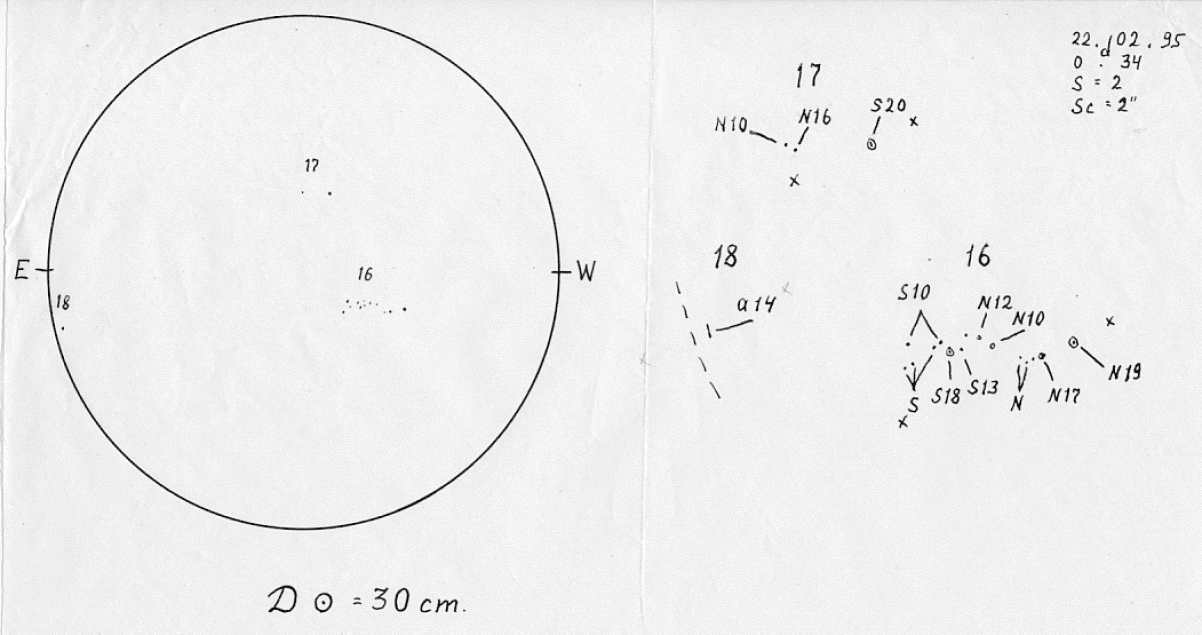 22.02.95
0 d. 34
S = 2
Sc = 2"
17
E
W
16
18
D ⊙ = 30 cm.
17
N10
N16
S20
x
x
18
a14
x
16
S10
N12
N10
x
N19
S
S18
S13
N
N17
x